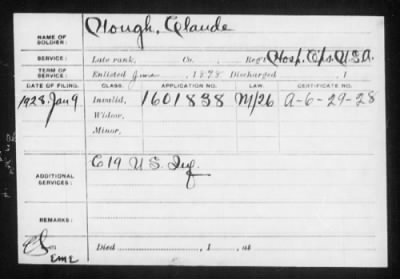 NAME OF SOLDIER: Clough, Claude
SERVICE: Late rank, Co. , Reg't Hosp. Cps. U.S.A.
TERM OF SERVICE: Enlisted June , 1898 Discharged , 1
DATE OF FILING. CLASS. APPLICATION NO. LAW. CERTIFICATE NO.
1928. Jan 9 Invalid, 1601838 M/26 A-6-29-28
Widow,
Minor,
ADDITIONAL SERVICES: C 19 U.S. Inf.
REMARKS:
EME
Died , 1 , at